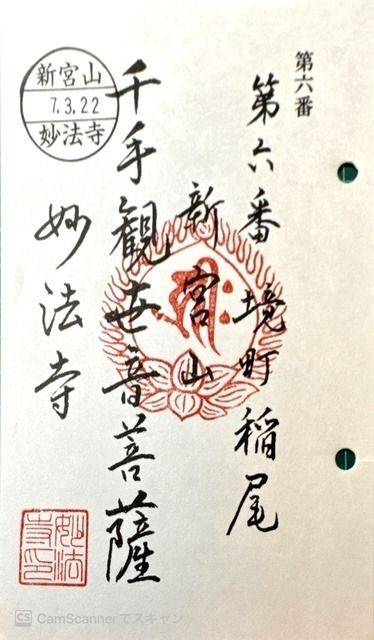 第六番
第六番 境町稲尾
新宮山
千手観世音菩薩
妙法寺
新宮山
7.3.22
妙法寺
妙法寺印
CS CamScannerでスキャン